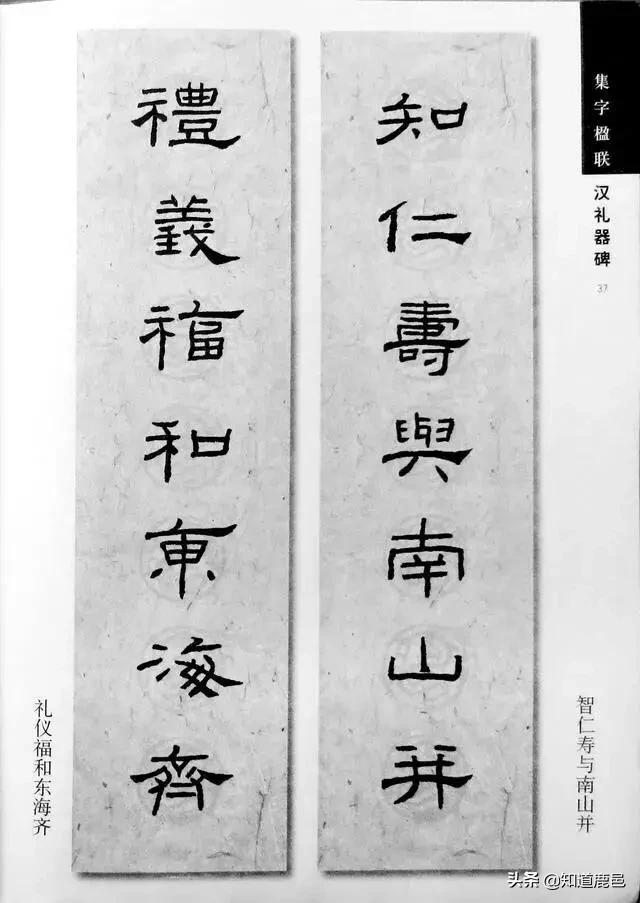 集字楹联 汉礼器碑
37
知仁壽與南山并
禮義福和東海齊
智仁寿与南山并
礼仪福和东海齐
头条 @知道鹿邑